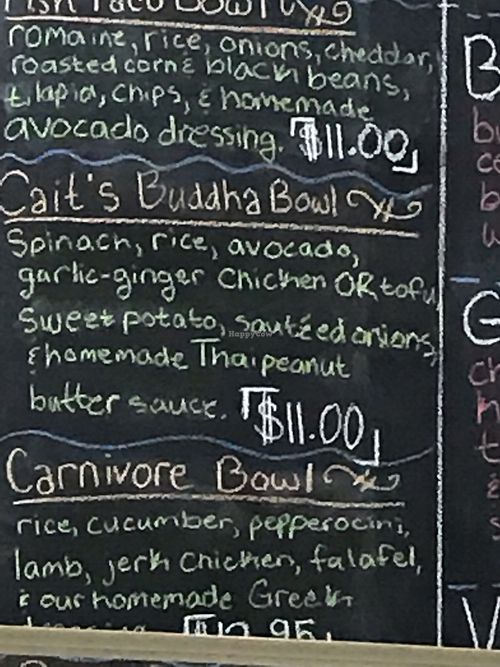 Fish Taco Bowl
romaine, rice, onions, cheddar,
roasted corn & black beans,
tilapia, chips, & homemade
avocado dressing. $11.00
Cait's Buddha Bowl
Spinach, rice, avocado,
garlic-ginger chicken OR tofu
sweet potato, sautéed onions,
& homemade Thai peanut
butter sauce. $11.00
Carnivore Bowl
rice, cucumber, pepperocini,
lamb, jerk chicken, falafel,
& our homemade Greek
HappyCow